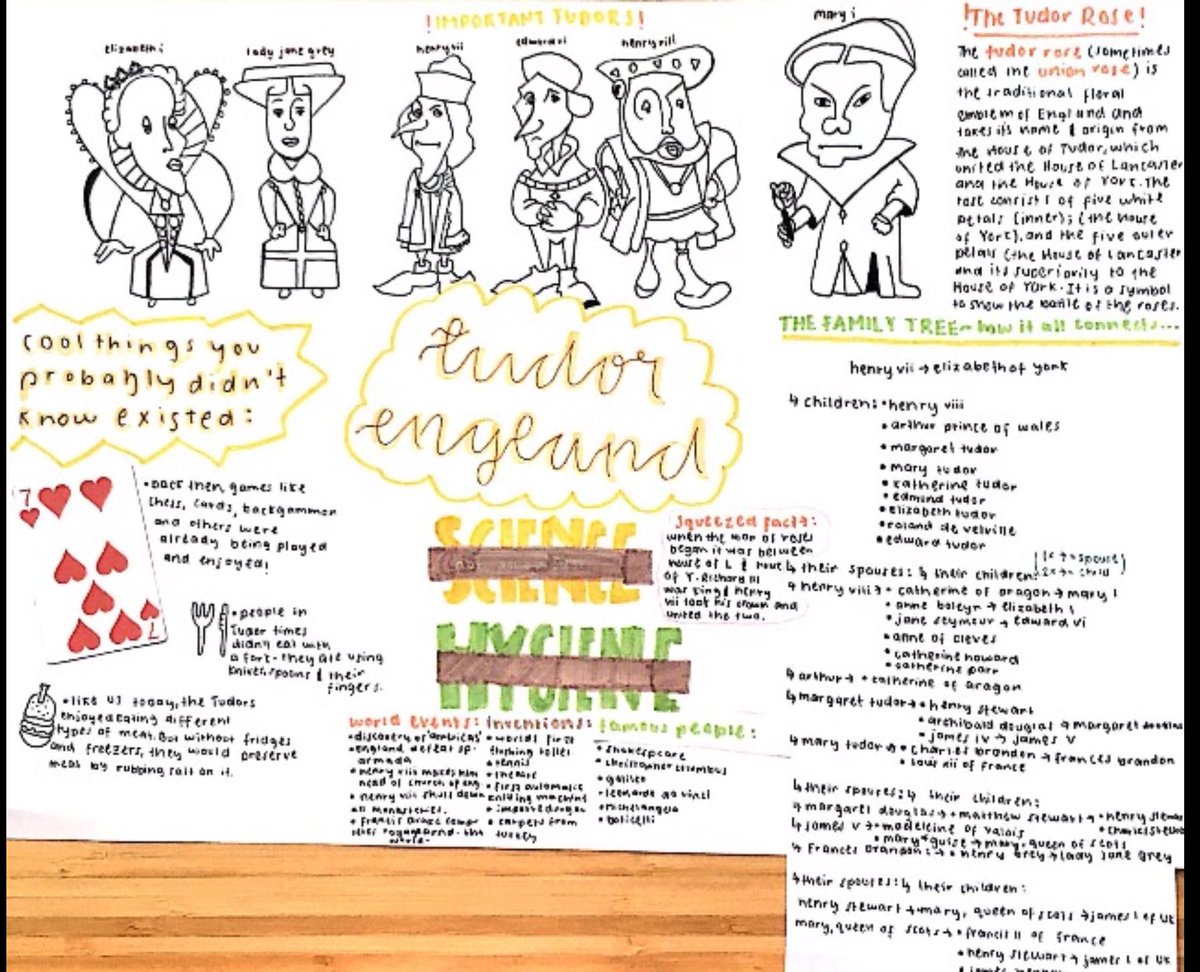 !IMPORTANT TUDORS!
elizabeth i
lady jane grey
henry vii
edward vi
henry viii
mary i
!The Tudor Rose!
The tudor rose (sometimes
called the union rose) is
the traditional floral
emblem of England and
takes its name & origin from
the House of Tudor, which
united the House of Lancaster
and the House of York. The
rose consists of five white
petals (inner); (the house
of York), and the five outer
petals (the House of Lancaster
and its superiority to the
House of York. It is a symbol
to show the battle of the roses.
cool things you
probably didn't
know existed:
tudor
england
7
7
• back then, games like
chess, cards, backgammon
and others were
already being played
and enjoyed!
• people in
Tudor times
didn't eat with
a fork - they ate using
knives, spoons & their
fingers.
• like us today, the Tudors
enjoyed eating different
types of meat. But without fridges
and freezers, they would preserve
meat by rubbing salt on it.
SCIENCE
HYGIENE
Squeezed fact:
when the war of roses
began it was between
house of L & house
of Y. Richard III
was king & henry
vii took his crown and
united the two.
world events:
• discovery of 'americas'
• england defeat sp.
armada
• henry viii makes him
head of church of eng
• henry viii shuts down
all monasteries.
• francis drake
voyage around the
world.
inventions:
• worlds first
flushing toilet
• tennis
• theatre
• first automatic
knitting machine
• carpets from
turkey
famous people:
• shakespeare
• christopher columbus
• galileo
• leonardo da vinci
• michelangelo
• boticelli
THE FAMILY TREE - how it all connects...
henry vii → elizabeth of york
↳ children: • henry viii
• arthur prince of wales
• margaret tudor
• mary tudor
• katherine tudor
• edmund tudor
• elizabeth tudor
• roland de velville
• edward tudor
(1x → = spouse)
2x → = child
↳ their spouses: ↳ their children:
↳ henry viii → • catherine of aragon → mary i
• anne boleyn → elizabeth i
• jane seymour → edward vi
• anne of cleves
• catherine howard
• catherine parr
↳ arthur → • catherine of aragon
↳ margaret tudor → • henry stewart
• archibald douglas → margaret douglas
• james iv → james v
↳ mary tudor → • charles brandon → frances brandon
• louis xii of france
↳ their spouses: ↳ their children:
↳ margaret douglas → • matthew stewart → • henry stewart
• charles stewart
↳ james v → • madeleine of valois
• mary of guise → mary, queen of scots
↳ frances brandon: → • henry grey → lady jane grey
↳ their spouses: ↳ their children:
henry stewart → mary, queen of scots → james i of uk
mary, queen of scots → • francis ii of france
• henry stewart → james i of uk